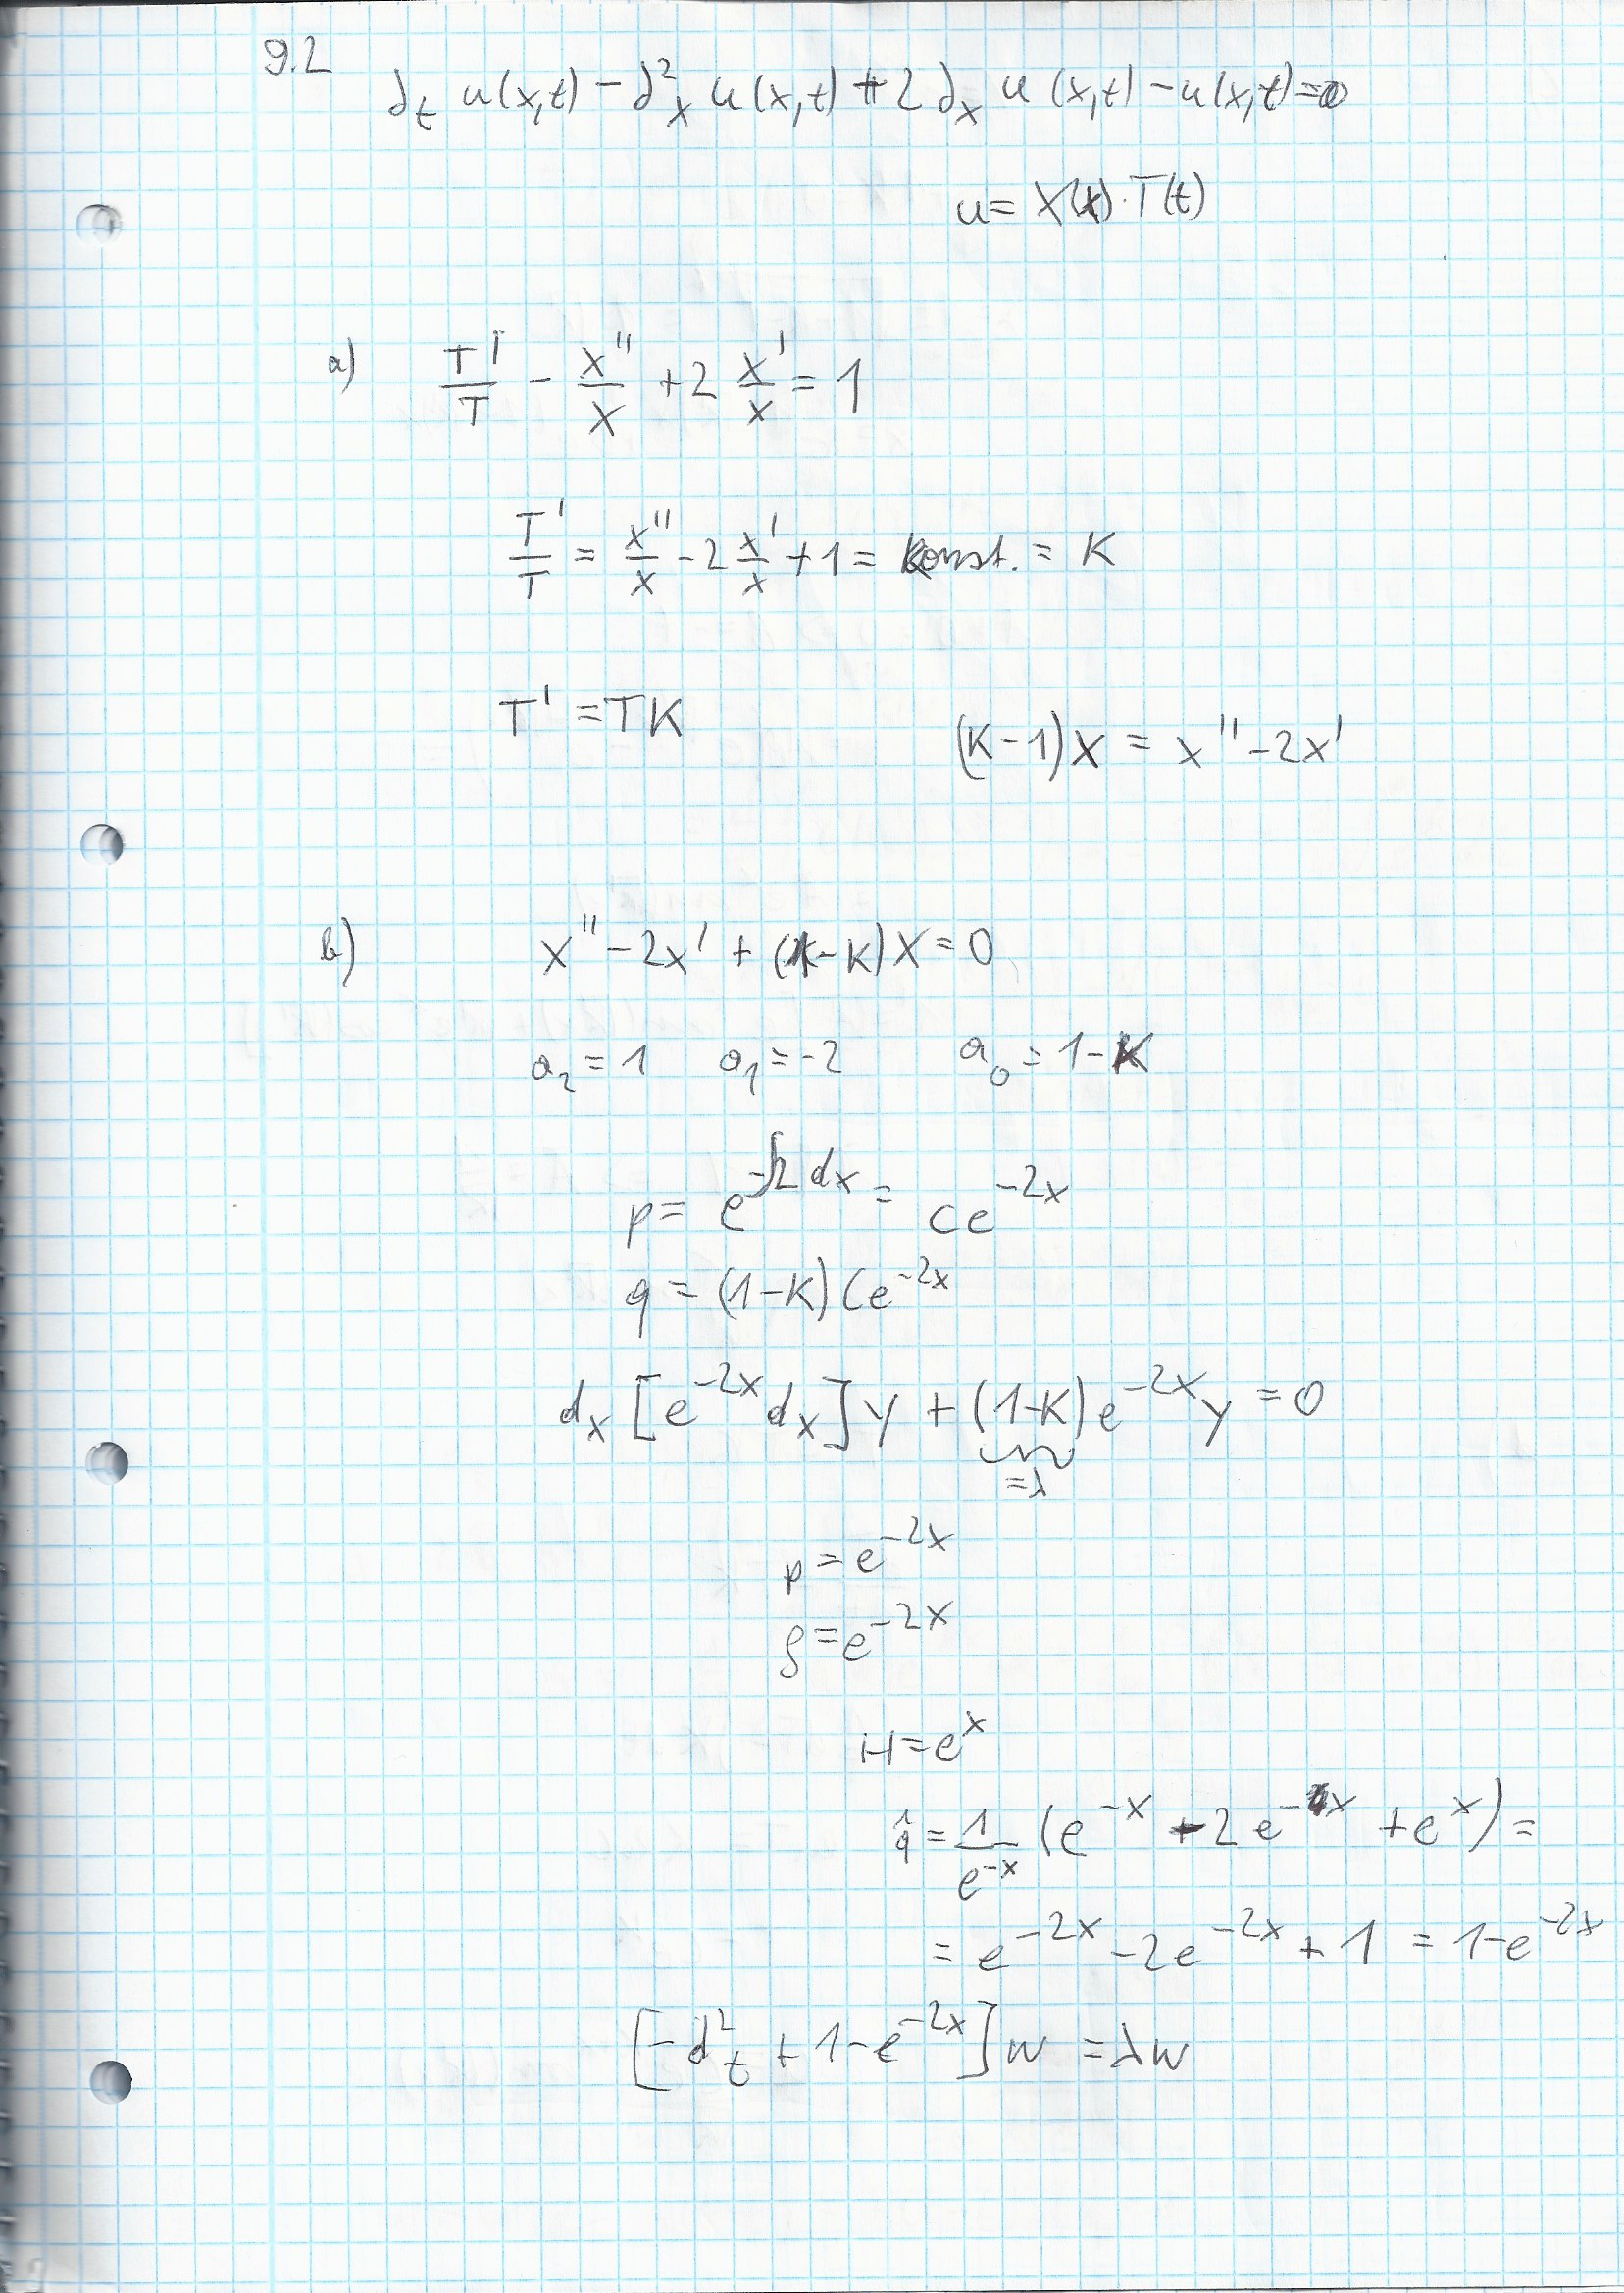 9.2
∂t u(x,t) - ∂²x u(x,t) + 2 ∂x u(x,t) - u(x,t) = 0
u = X(x) · T(t)
a) T'/T - X''/X + 2 X'/X = 1
T'/T = X''/X - 2 X'/X + 1 = konst. = K
T' = TK (K-1)X = X'' - 2X'
b) X'' - 2X' + (1-K)X = 0
a₂ = 1 a₁ = -2 a₀ = 1-K
p = e^{-∫2 dx} = Ce^{-2x}
q = (1-K) Ce^{-2x}
dx [e^{-2x} dx] y + (1-K) e^{-2x} y = 0
= λ
p = e^{-2x}
ρ = e^{-2x}
H = e^x
q̂ = 1/e^{-x} (e^{-x} - 2e^{-x} + e^x) =
= e^{-2x} - 2e^{-2x} + 1 = 1 - e^{-2x}
[-d²t + 1 - e^{-2x}] w = λw